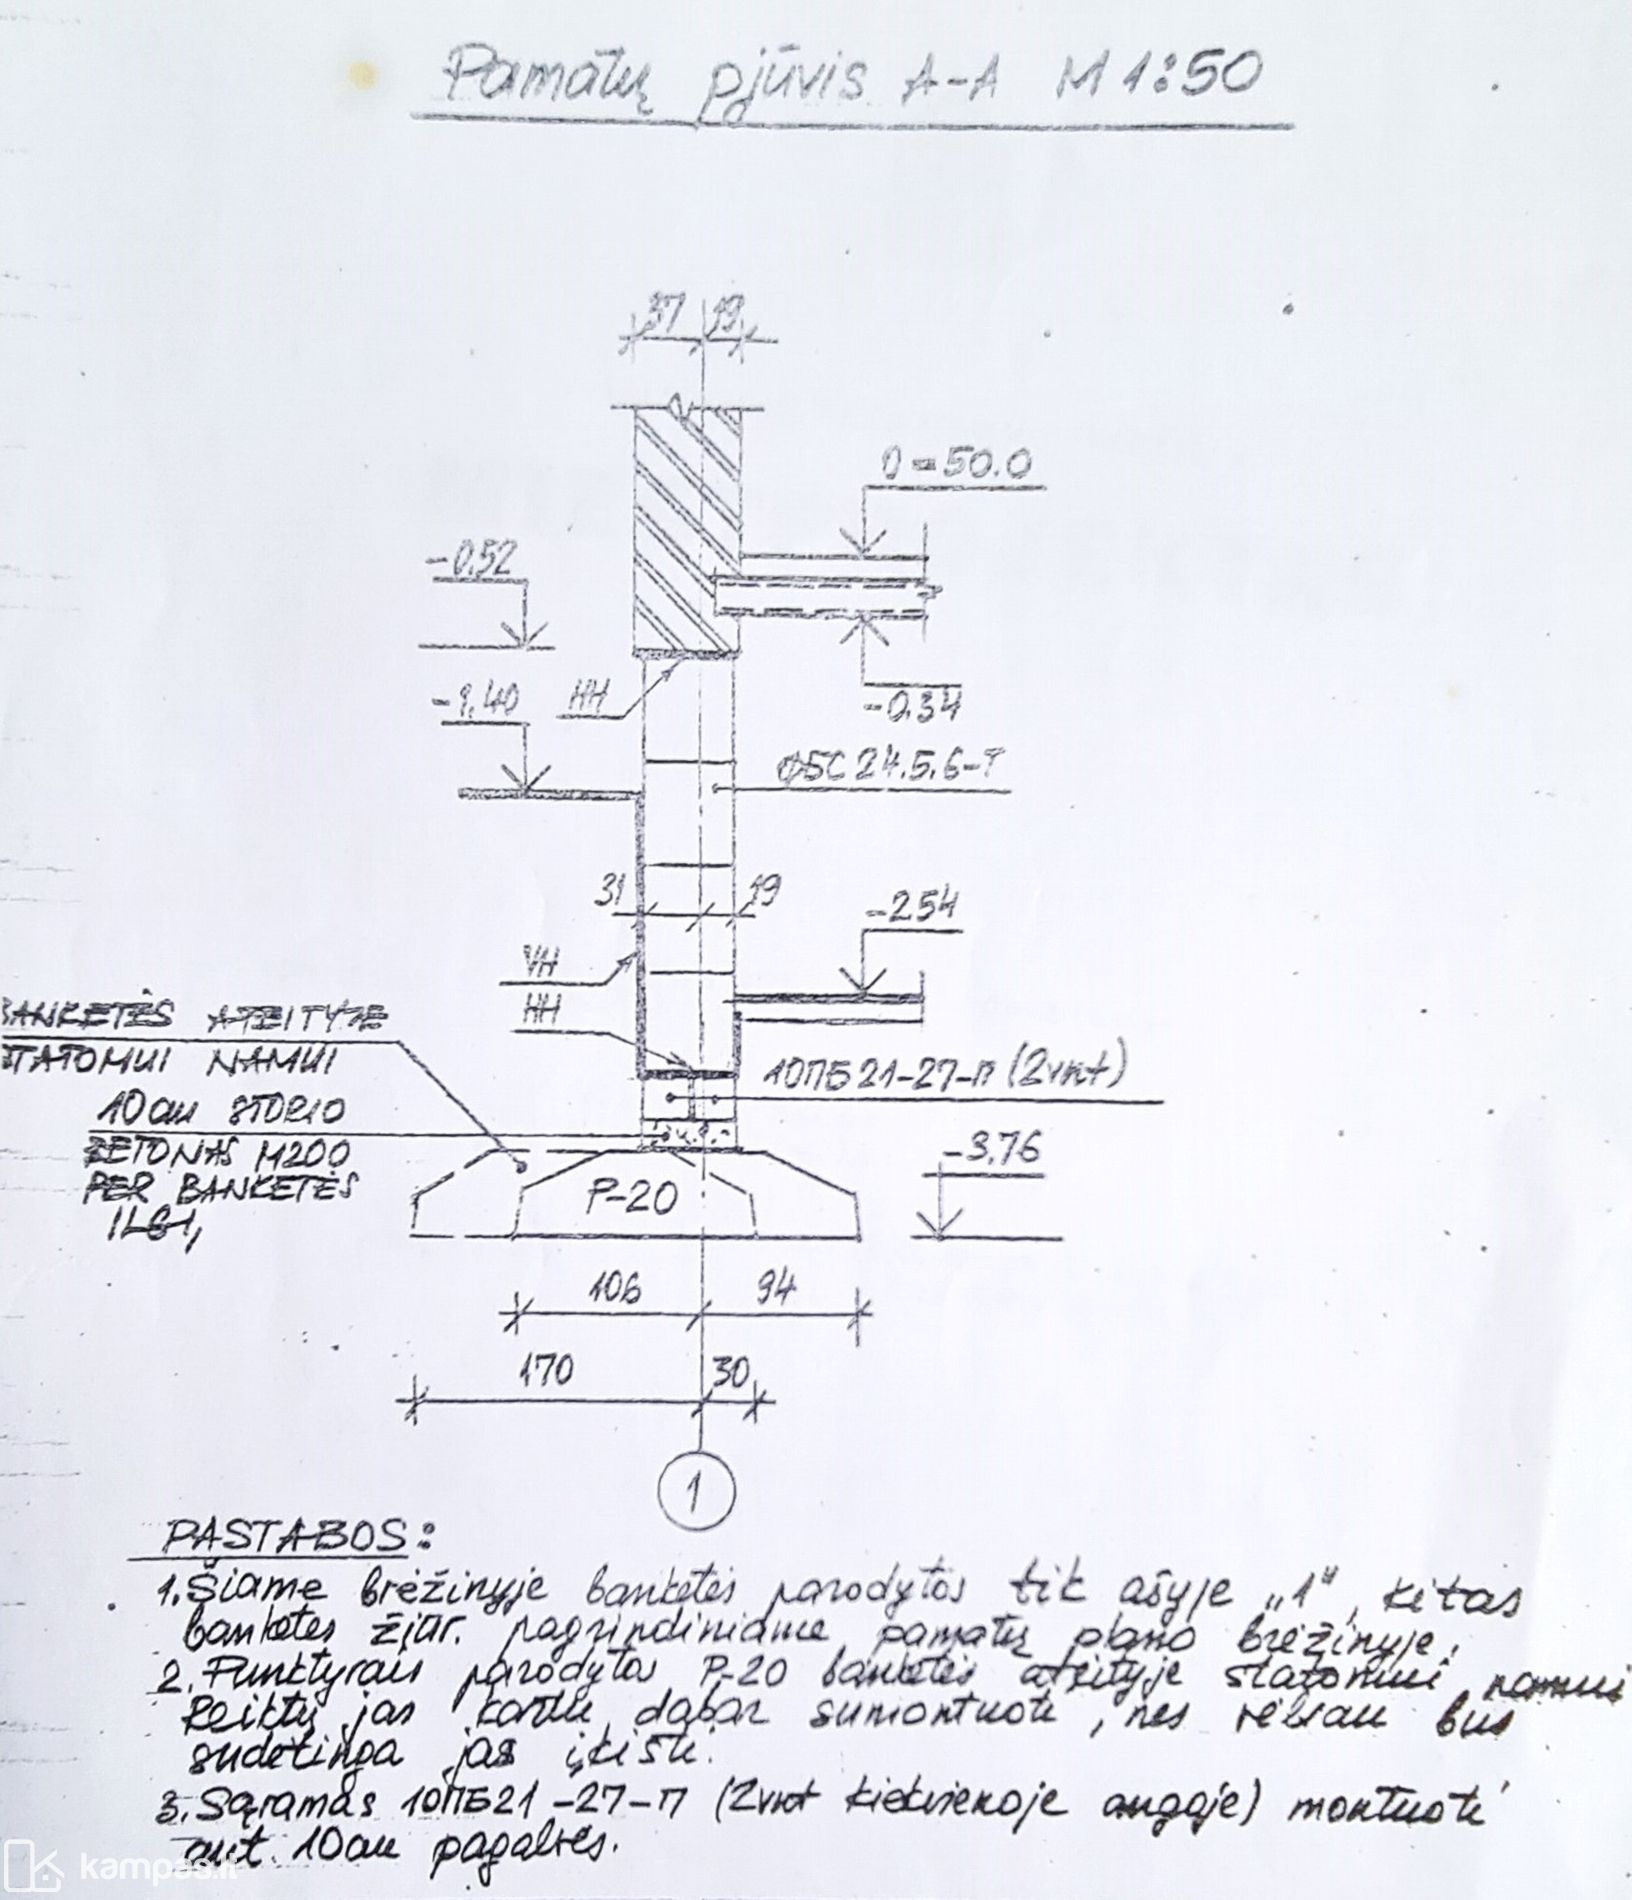 Pamatų pjūvis A-A M 1:50
37 19
0=50.0
-0.52
-1.40
HH
-0.34
ФБС 24.5.6-Т
31 19
-2.54
VH
HH
BANKETĖS ATEITYJE
STATOMUI NAMUI
10ПБ21-27-п (2vnt)
10cm STORIO
BETONAS M200
PER BANKETĖS
ILGI,
-3.76
P-20
106 94
170 30
1
PASTABOS:
1. Šiame brėžinyje banketės parodytos tik ašyje „1", kitas
banketes žiūr. pagrindiniame pamatų plano brėžinyje.
2. Punktyrais parodytos P-20 banketės ateityje statomui namui
Reiktų jas kartu dabar sumontuoti, nes vėliau bus
sudėtinga jas įkišti.
3. Sąramas 10ПБ21-27-п (2vnt kiekvienoje angoje) montuoti
ant 10cm pagalvės.
kampas.lt